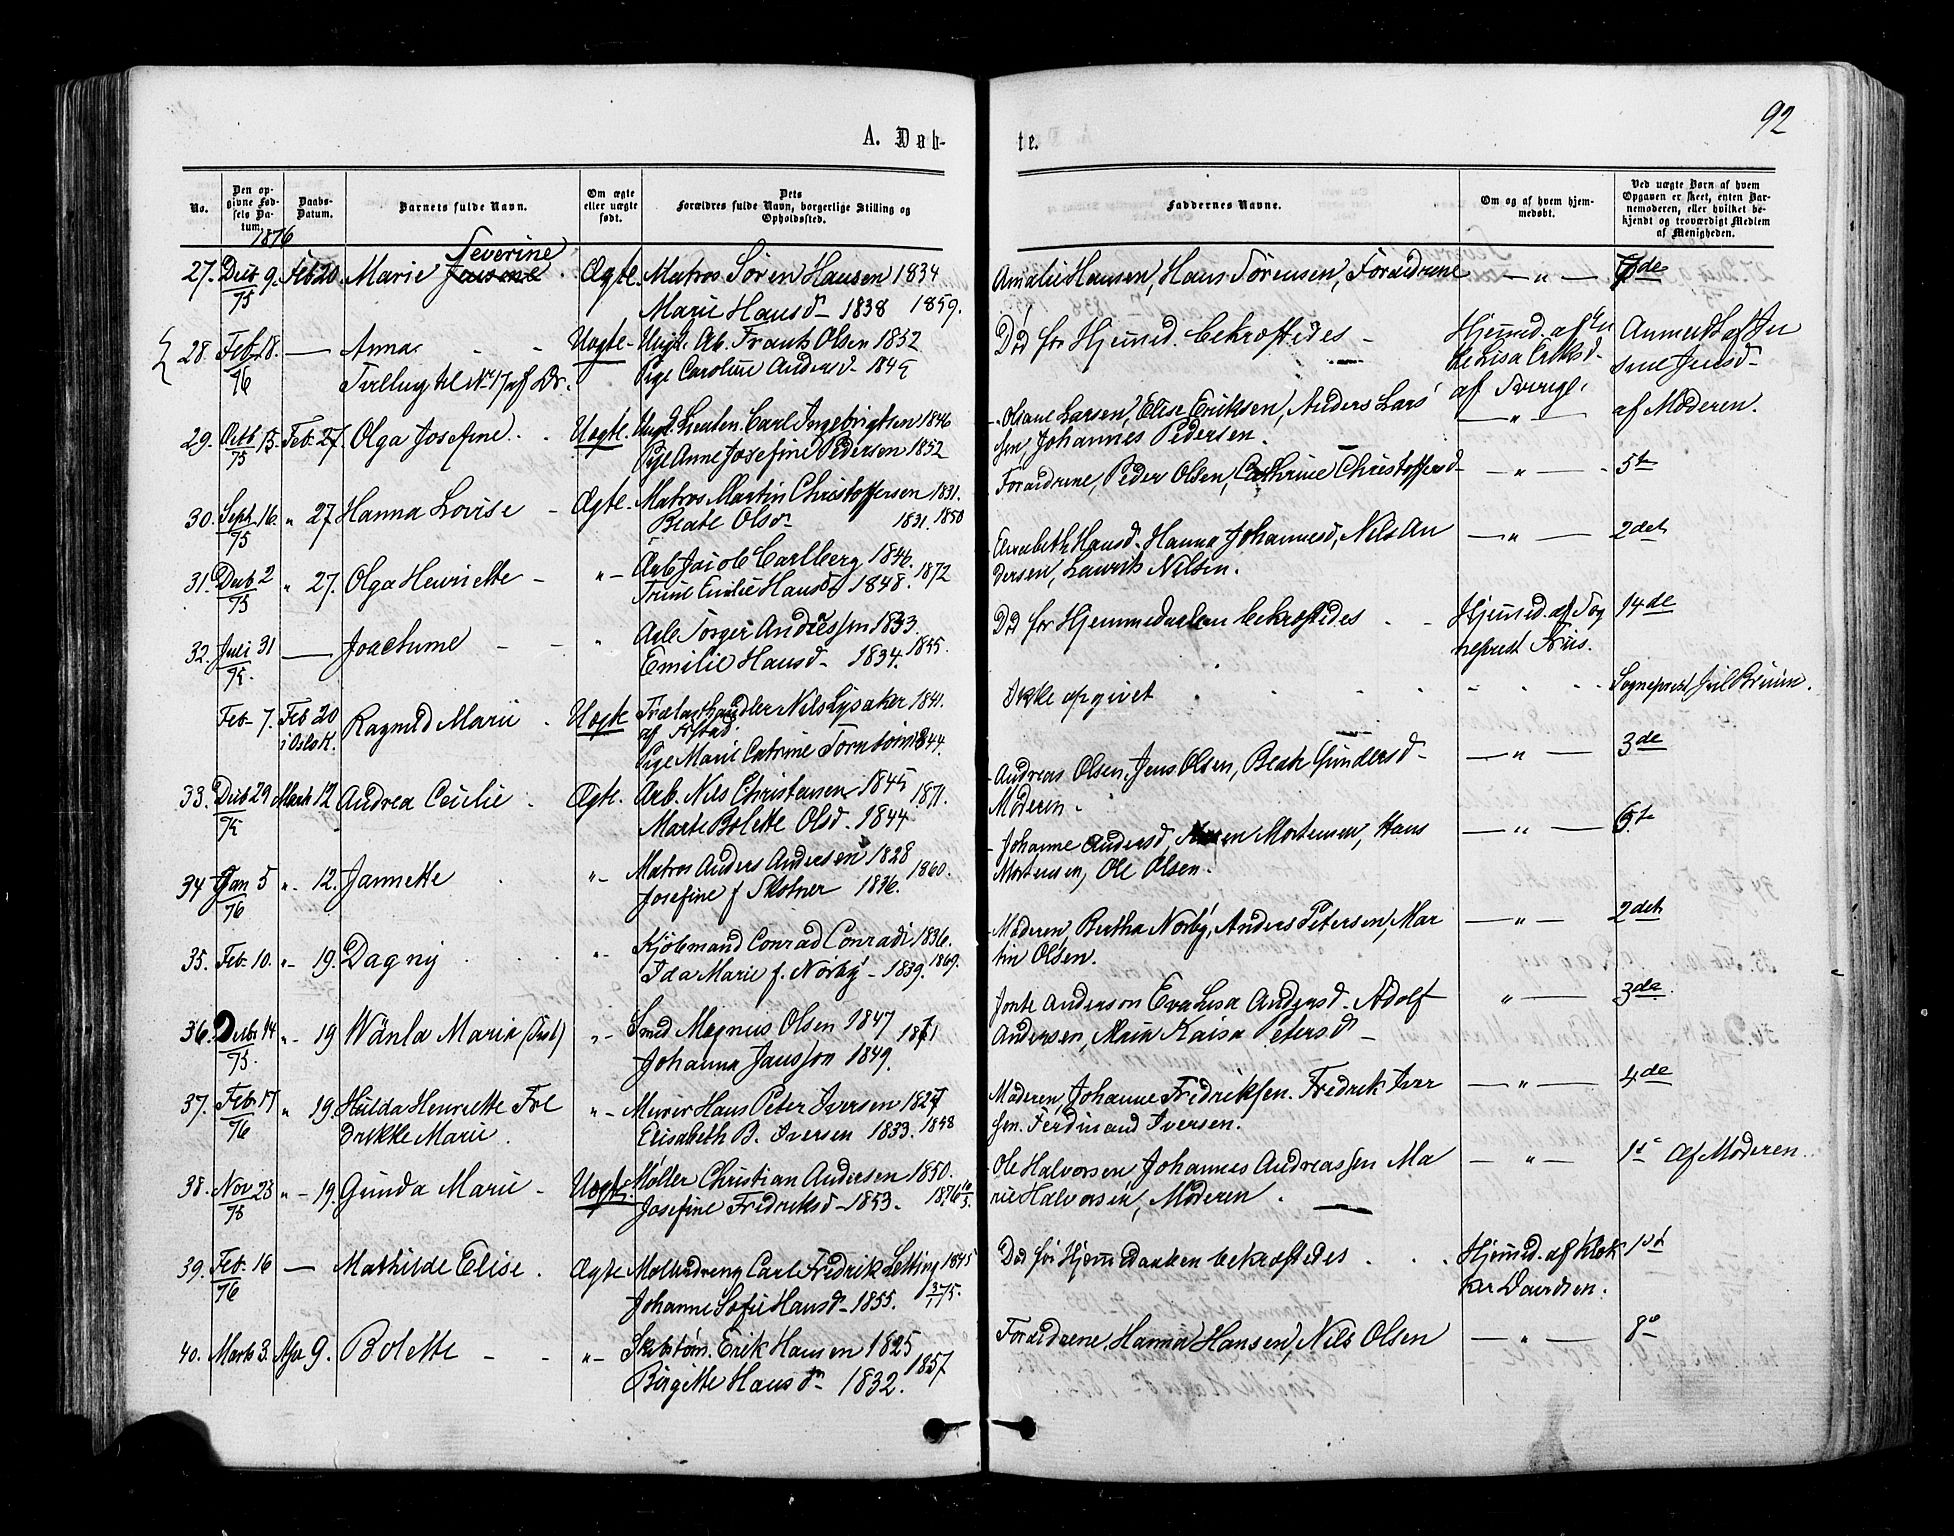 92
A. Døb-
te.
No.
Den opgivne Fødsels Datum.
Daabs-Datum.
Barnets fulde Navn.
Om ægte eller uægte født.
Dets Forældres fulde Navn, borgerlige Stilling og Opholdssted.
Faddernes Navne.
Om og af hvem hjemmedøbt.
Ved uægte Børn af hvem Opgaven er skeet, enten Barnemoderen, eller hvilket bekjendt og troværdigt Medlem af Menigheden.
1876
Severine
27. Decb 9. Feb 20. Marie Ægte. Matros Søren Hansen 1834
75 Marie Hansd 1838 1859.
Amalie Hansen, Hans Sørensen, Forældrene — " — 7de
28. Feb 18. — Anna Uægte Ungk. Ab. Frantz Olsen 1852
76 Tvilling til No 17 af Dr. Pige Caroline Andersd 1845
Død før Hjemmd. bekræftedes
Hjemmd. af
Lisa Eriksd.
af Sverige.
Anmeldt af
29. Octb 13. Feb. 27. Olga Josefine. Uægte. Ungk. Carl Ingebrigtsen 1846
75 Pige Anne Josefine Pedersen 1852
Olsane Larsen, Elise Eriksen, Anders Lar
sen, Johannes Pedersen. — " — af Moderen.
30. Sept. 16. " 27. Hanna Lovise Ægte. Matros Martin Christoffersen 1831.
75 Beate Olsd 1831. 1850
Forældrene, Peder Olsen, Cathrine Christoffersd — " — 5te
31. Decb 2 " 27. Olga Henriette " Arb Jacob Carlberg 1846.
75 Trine Emilie Hansd 1848. 1872
Elisabeth Hansd. Hanna Johannesd, Nils An
dersen, Laurits Nilsen. — " — 2det
32. Juli 31 — " Arb Torger Andressen 1833.
75. Emilie Hansd 1834. 1855.
Død før Hjemmedaaben bekræftedes
Hjemmd. af Sog
neprest Friis.
14de
Feb 7. Feb 20 Ragnild Marie Uægte Trælasthandler Nils Lysaker 1841.
i Oslo K. af Ystad.
Pige Marie Catrine Tornboim 1844.
Ikke opgivet
33. Decb 29 Marts 12. Andrea Cecilie. Ægte. Arb. Nils Christensen 1845
75 Marte Bolette Olsd. 1844 1871.
Andreas Olsen, Jens Olsen, Beate Gundersd — " — 3de
Moderen.
34 Jan 5 " 12. Jannette " Matros Anders Andersen 1828
76 Josefine f Skotner 1836. 1860.
Johanne Andersd, Mortensen, Hans
Mortensen, Ole Olsen. — " — 6te
35. Feb. 10. " 19. Dagny " Kjøbmand Conrad Conradi 1836.
Ida Marie f. Nørby 1839. 1869.
Moderen, Bertha Nørby, Anders Petersen, Mar
tin Olsen. — " — 2det
36. Decb. 14 " 19 Wänla Maria " Smed Magnus Olsen 1847
75. Johanna Jansson 1849. 1871
Anderson Eva Lisa Andersd. Adolf
Andersen, Maia Kaisa Petersd " — 3de
37. Feb. 17 " 19. Hilda Henriette Fre " Murer Hans Peter Iversen 1827
76 drikke Marie. Elisabeth B. Iversen 1833. 1858
Moderen, Johanne Fredriksen. Fredrik Iver
sen. Ferdinand Iversen. — " — 4de
38. Nov 23 " 19. Gunda Marie Uægte. Møller Christian Andersen 1850.
75 Josefine Fredriksd 1853. 1876
Ole Halvorsen, Johannes Andreassen Ma
rie Halvorsen, Moderen. — " — 1st Af Moderen.
39. Feb. 16 — Mathilde Elise. Ægte Carl Fredrik 1845
76 Johanne Sofie Hansd 1855.
Død før Hjemmedaaben bekræftedes
Hjemmd. af Klok
ker Davidsen.
1st
40. Marts 3. Apr 9. Bolette " Skibstøm. Erik Hansen 1825
Birgitte Hansd 1832. 1857
Forældrene, Hanna Hansen, Nils Olsen — " — 8